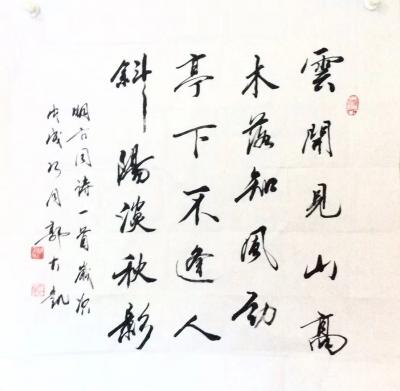 雲開見山高
木落知風勁
亭下不逢人
斜陽淡秋影
明周詩一首歲次
戊戌月郭大凱